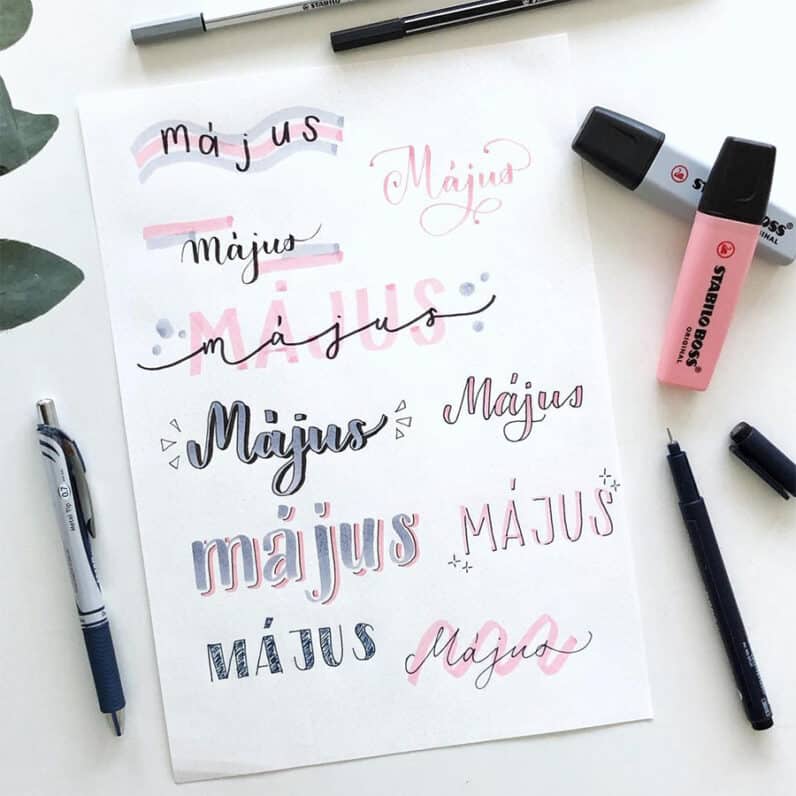 STABILO
STABILO
május
Május
Május
MÁJUS
május
Május
Május
május
MÁJUS
MÁJUS
Május
STABILO BOSS
ORIGINAL
STABILO BOSS
ORIGINAL
0.7